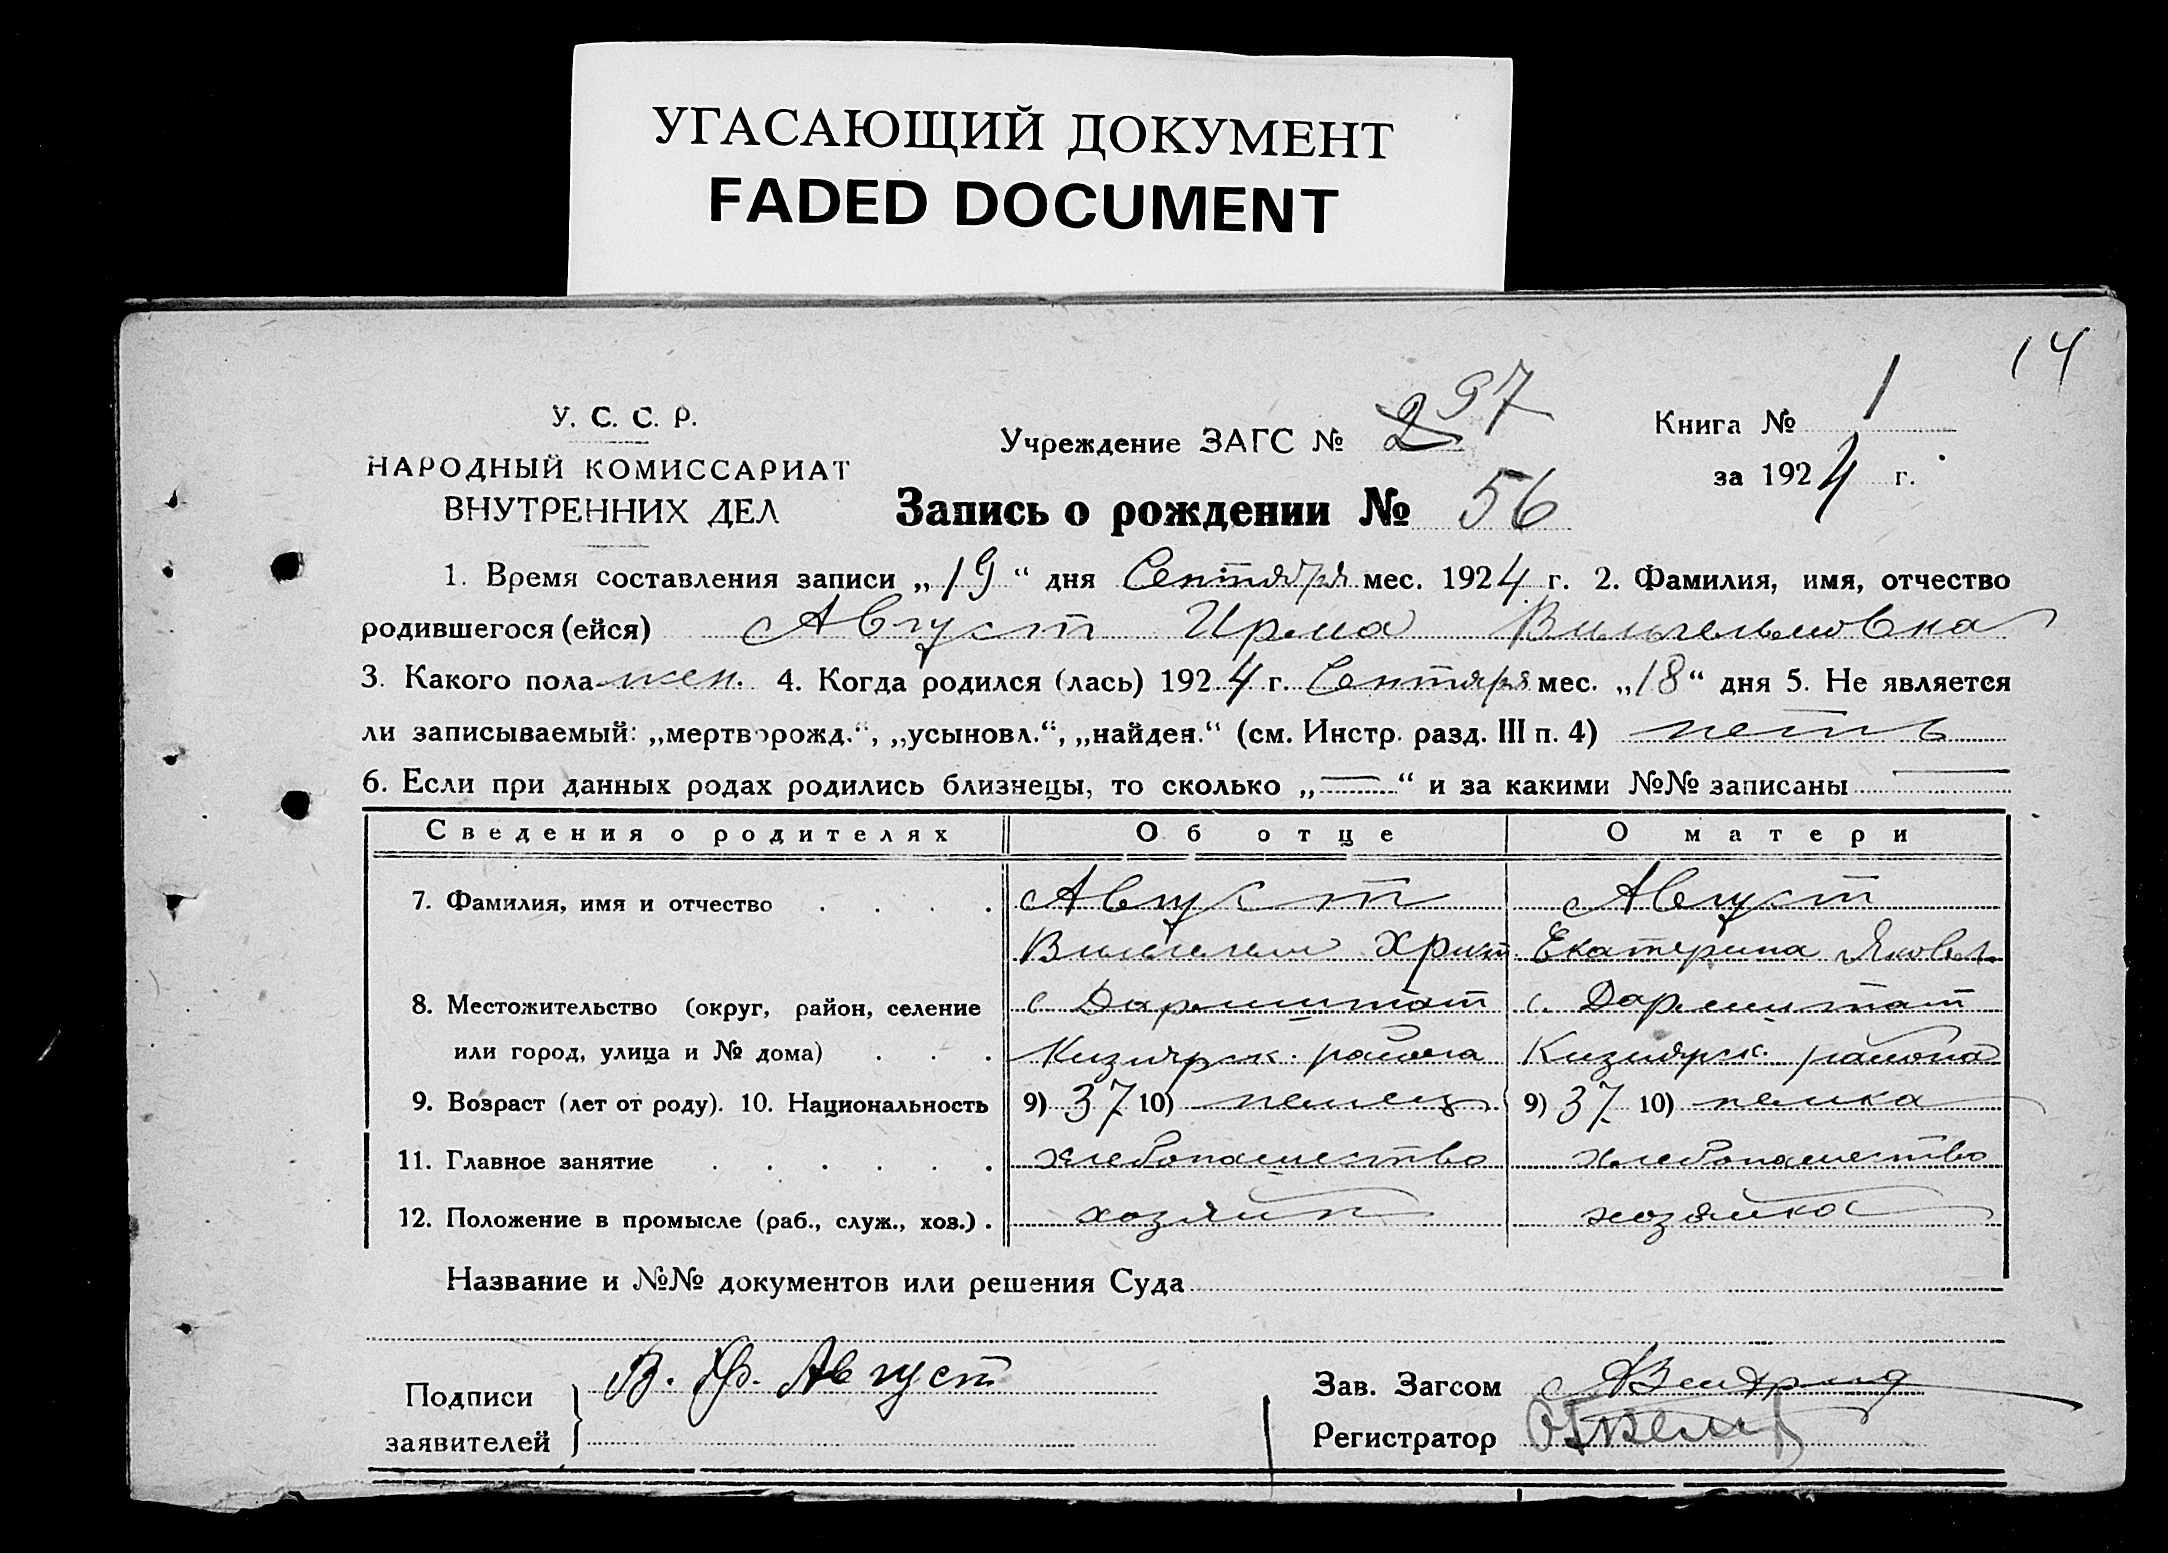 УГАСАЮЩИЙ ДОКУМЕНТ
FADED DOCUMENT
14
У. С. С. Р.
НАРОДНЫЙ КОМИССАРИАТ
ВНУТРЕННИХ ДЕЛ
Учреждение ЗАГС № 97
Книга № 1
за 1924 г.
Запись о рождении № 56
1. Время составления записи „19“ дня Сентября мес. 1924 г. 2. Фамилия, имя, отчество
родившегося (ейся) Август Ирма Вильгельмовна
3. Какого пола жен. 4. Когда родился (лась) 1924 г. Сентября мес. „18“ дня 5. Не является
ли записываемый: „мертворожд.“, „усыновл.“, „найден.“ (см. Инстр. разд. III п. 4) нетъ
6. Если при данных родах родились близнецы, то сколько „—“ и за какими №№ записаны —
Сведения о родителях Об отце О матери
7. Фамилия, имя и отчество . . . . Август Август
Вильгельм Христ. Екатерина Яковл.
8. Местожительство (округ, район, селение с Дармштат с. Дармштат
или город, улица и № дома) . . . Кизиярск. района Кизиярск. района
9. Возраст (лет от роду). 10. Национальность 9) 37 10) немец 9) 37 10) немка
11. Главное занятие . . . . . . хлебопашество хлебопашество
12. Положение в промысле (раб., служ., хоз.) . хозяин хозяйка
Название и №№ документов или решения Суда
Подписи
заявителей
В. Хр. Август
Зав. Загсом
Регистратор